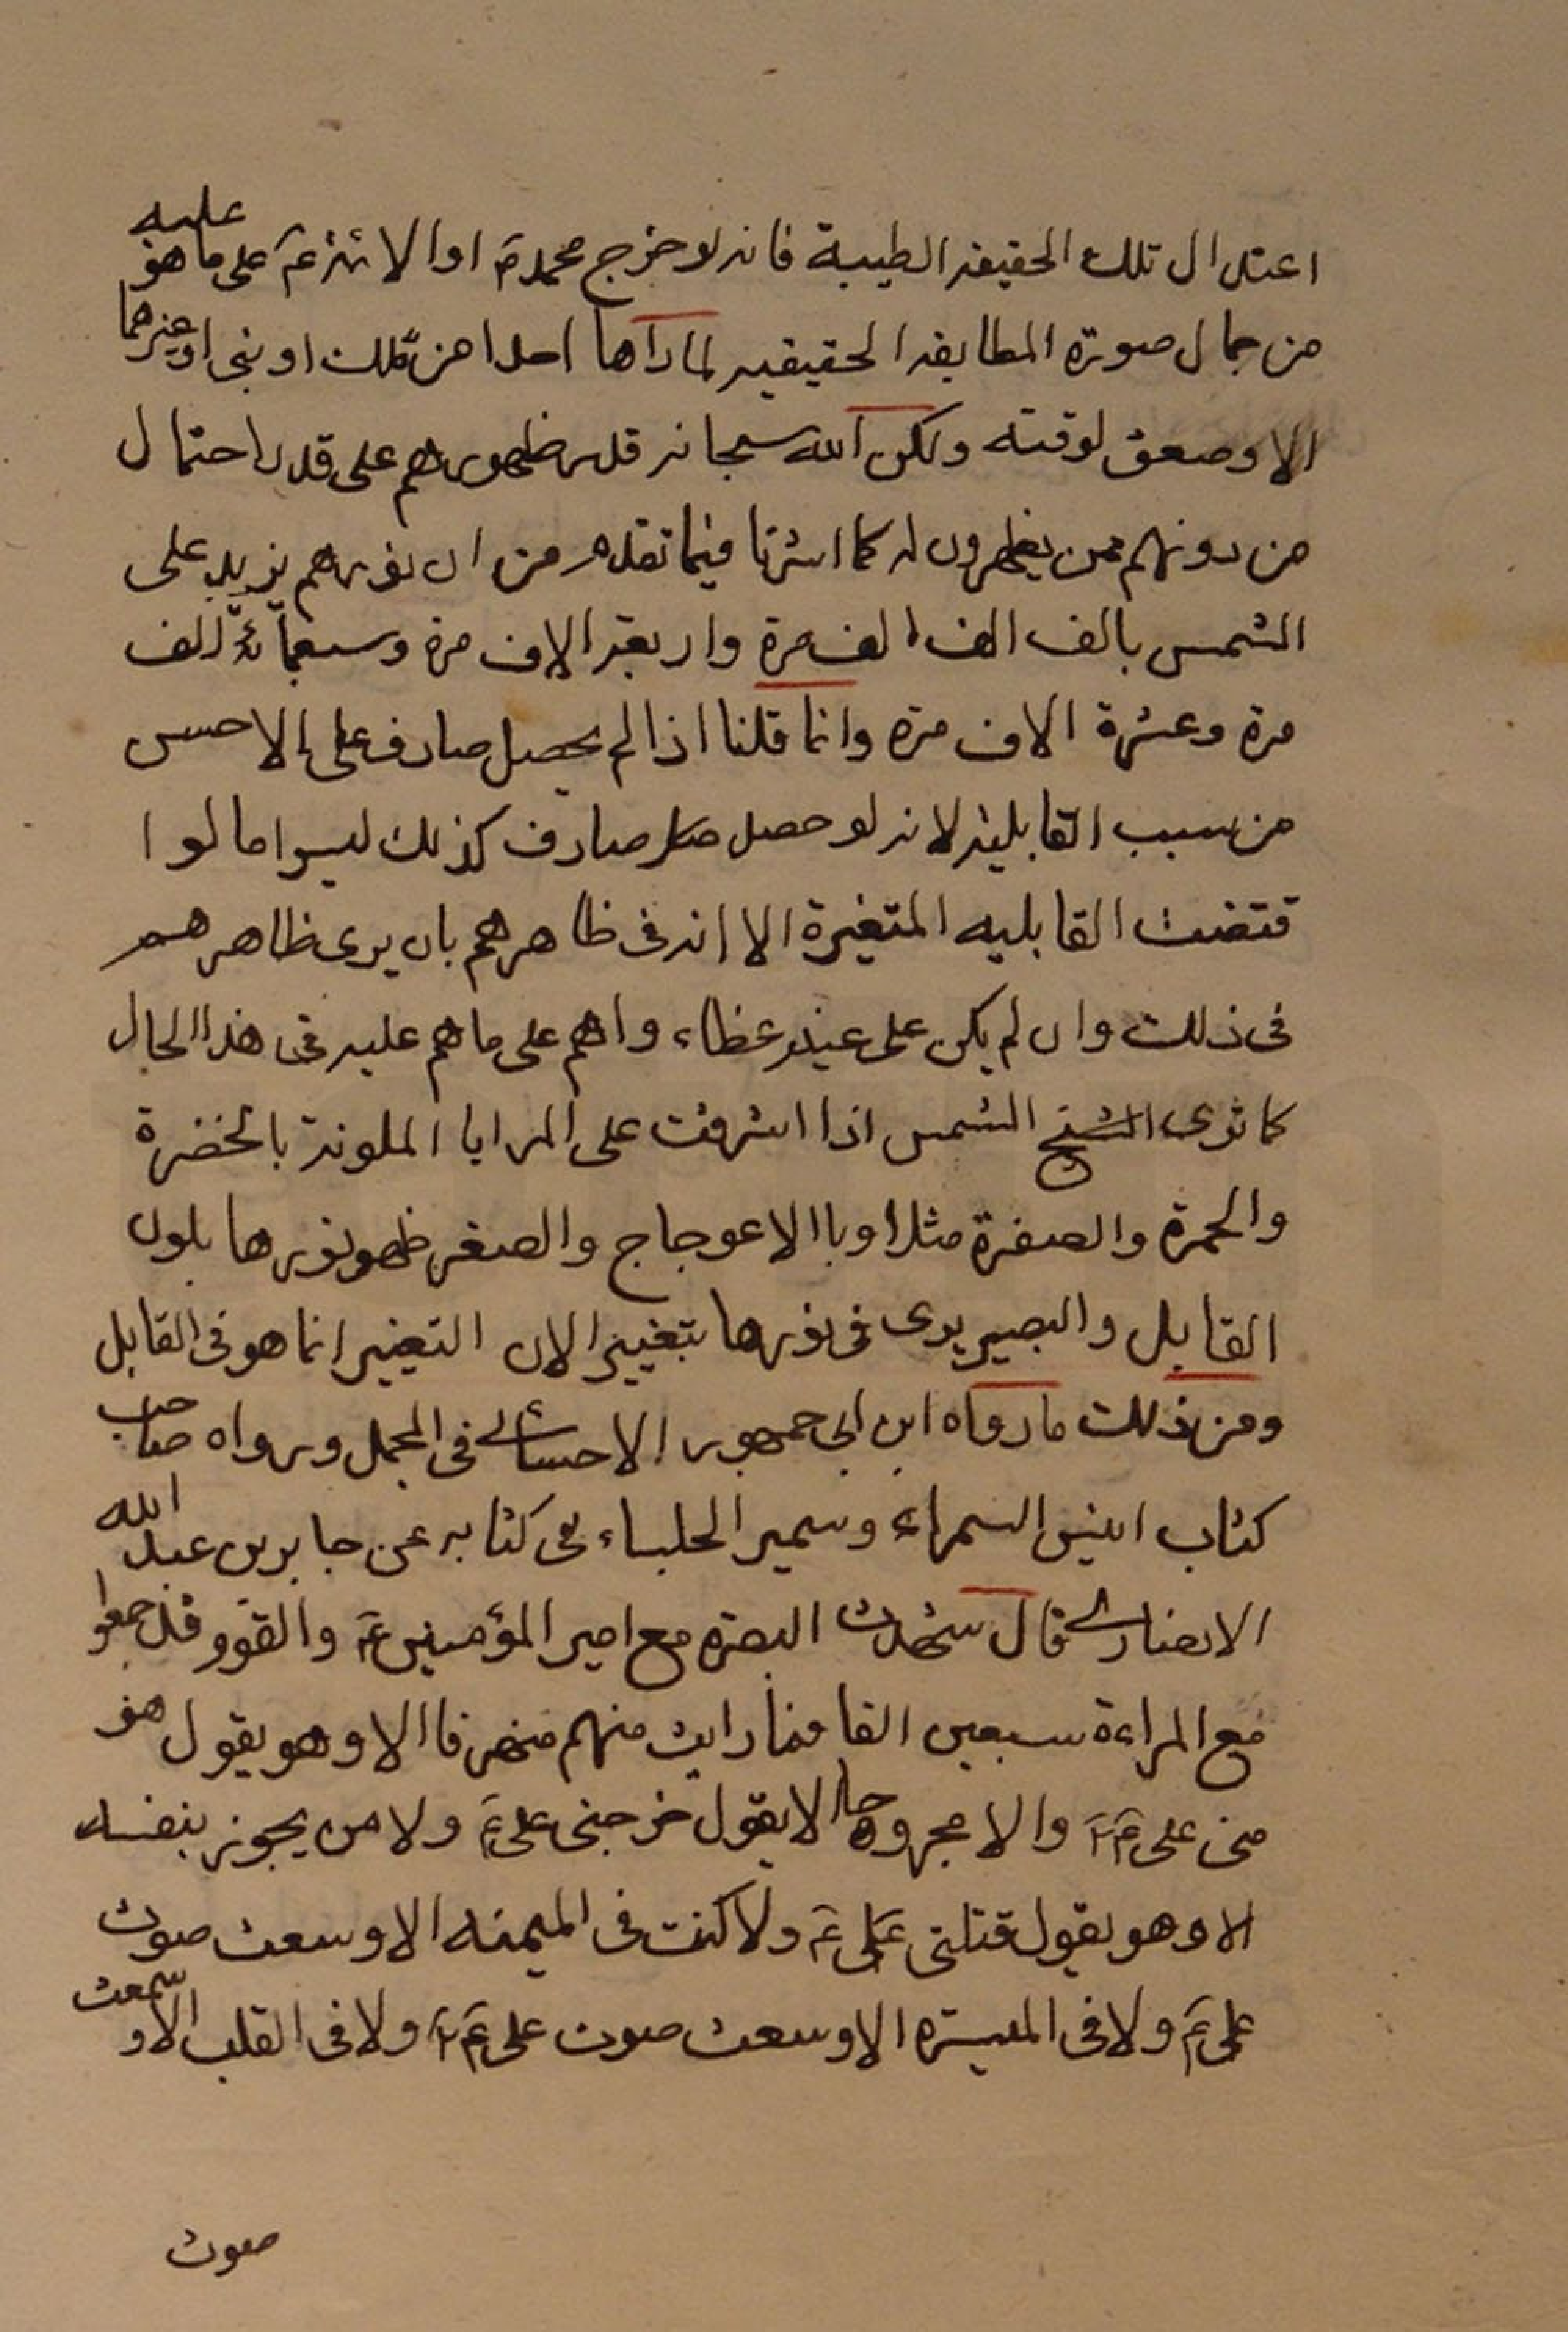 اعتدال تلك الحقيقه الطيبة فانه لو خرج محمد ص او الائمه ع على ما هو عليه
من جمال صورة المطابقه الحقيقيه لما رآها احدا من ملك او نبى او غيرهما
الا وصعق لوقته ولكن الله سبحانه قدر ظهورهم على قدر احتمال
من دونهم ممن يظهرون له كما اشرنا فيما تقدم من ان نورهم يزيد على
الشمس بالف الف الف مرة واربعة الاف مرة وسبعمائة الف
مرة وعشرة الاف مرة وانما قلنا اذا لم يحصل صارف على الاحسن
من سبب القابلية لانه لو حصل صارف كذلك لبسوا ما لو ا
قتضت القابليه المتغيرة الا انه فى ظاهرهم بان يرى ظاهرهم
فى ذلك وان لم يكن على عينه غطاء راهم على ما هم عليه فى هذا الحال
كما ترى الشمس اذا اشرقت على المرايا الملونة بالخضرة
والحمرة والصفرة مثلا او باالاعوجاج والصغر ظهر نورها بلون
القابل والبصير يرى فى نورها بتغيير الان التغيير انما هو فى القابل
ومن ذلك ما رواه ابن ابى جمهور الاحسائى فى المجمل ورواه صاحب
كتاب انيس السمراء وسمير الجلساء فى كتابه عن جابر بن عبد الله
الانصارى قال شهدت البصرة مع امير المؤمنين ع والقوم قد جمعوا
مع المراءة سبعين الفا فما رايت منهم منهزما الا وهو يقول هز
منى على ع والا مجروحا الا يقول جرحنى على ع ولا من يجوز بنفسه
الا وهو يقول قتلنى على ع ولا كنت فى الميمنه الا وسمعت صوت
على ع ولا فى الميسره الا وسمعت صوت على ع ولا فى القلب الا وسمعت
صوت